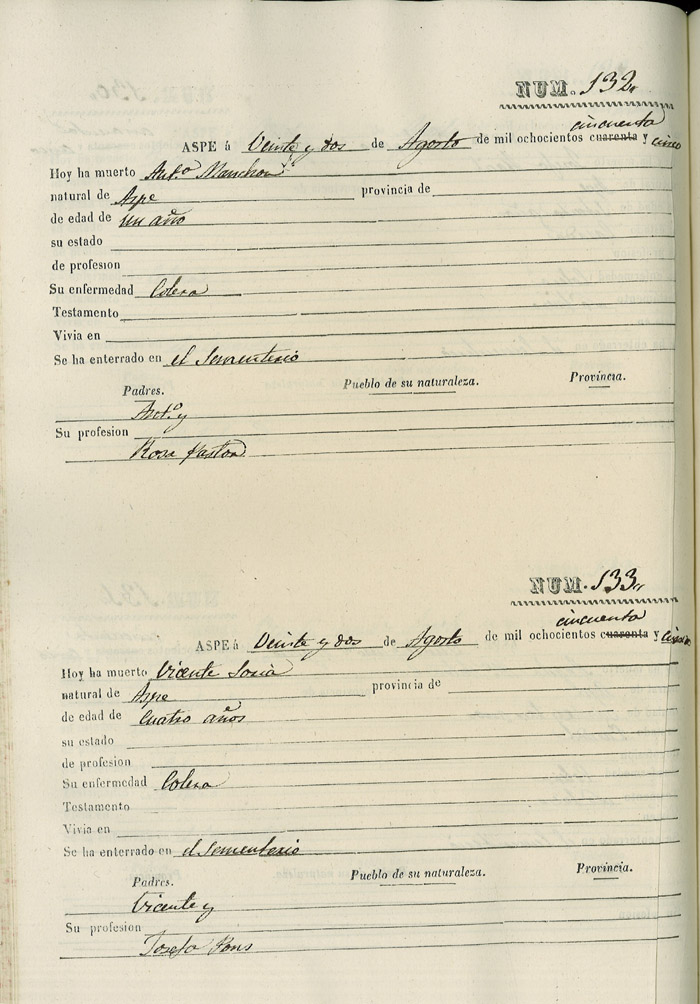 NUM. 132
cincuenta
ASPE á Veinte y dos de Agosto de mil ochocientos cuarenta y cinco
Hoy ha muerto Ant.º Manchon
natural de Aspe provincia de
de edad de un año
su estado
de profesion
Su enfermedad Colera
Testamento
Vivia en
Se ha enterrado en el Sementerio
Padres. Pueblo de su naturaleza. Provincia.
Ant.º y
Su profesion
Rosa Pastor
NUM. 133
cincuenta
ASPE á Veinte y dos de Agosto de mil ochocientos cuarenta y cinco
Hoy ha muerto Vicente Soria
natural de Aspe provincia de
de edad de Cuatro años
su estado
de profesion
Su enfermedad Colera
Testamento
Vivia en
Se ha enterrado en el Sementerio
Padres. Pueblo de su naturaleza. Provincia.
Vicente y
Su profesion
Josefa Pons